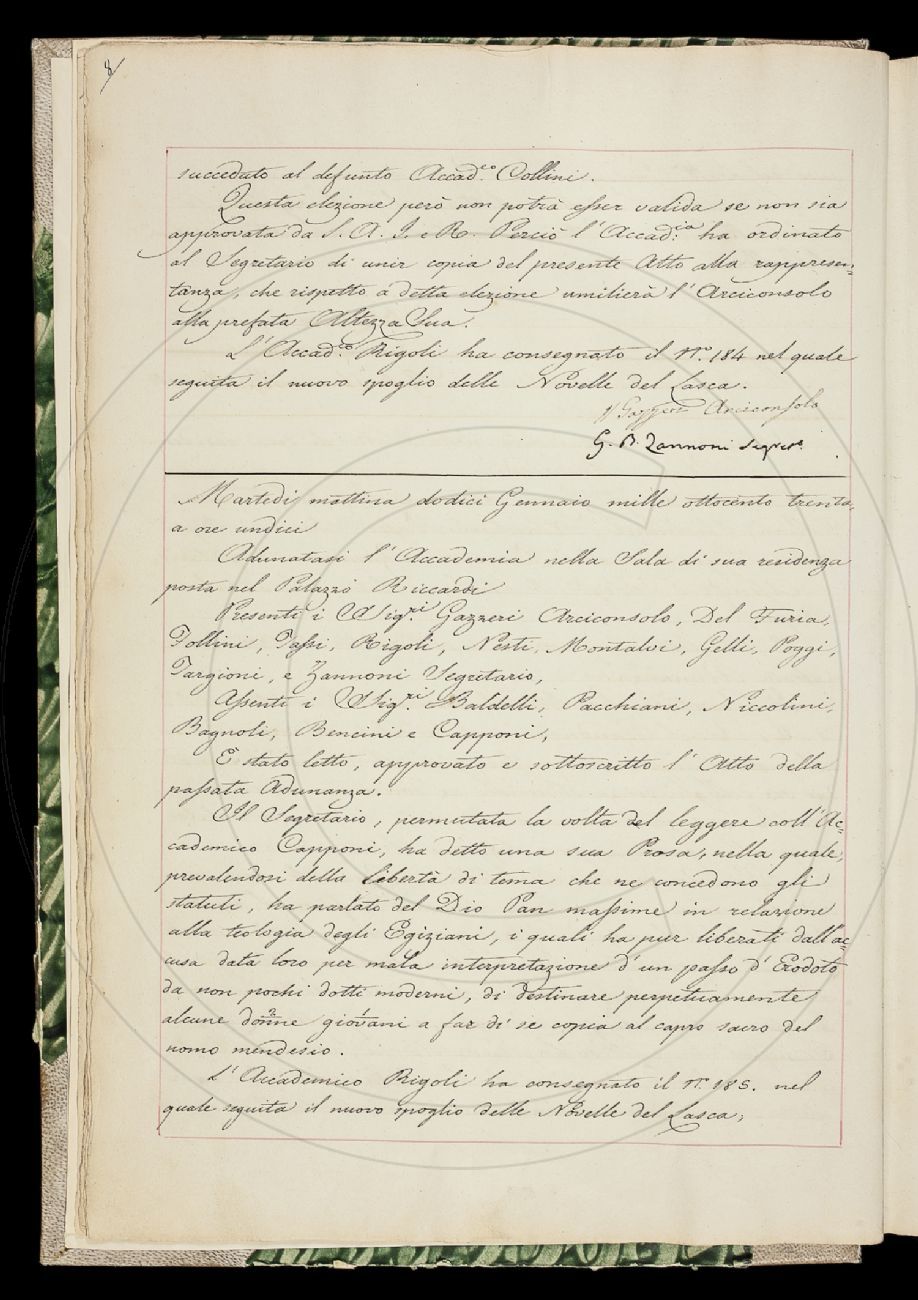 8
succeduto al defunto Accad.co Collini.
Questa elezione però non potrà esser valida se non sia
approvata da S. A. I. e R. Perciò l'Accad.ia ha ordinato
al Segretario di unir copia del presente Atto alla rappresen-
tanza, che rispetto a detta elezione umilierà l'Arciconsolo
alla prefata Altezza Sua.
L'Accad.co Rigoli ha consegnato il N.o 184 nel quale
seguita il nuovo spoglio delle Novelle del Lasca.
Gazzeri Arciconsolo
G. B. Zannoni Segret.o
Martedì mattina dodici Gennaio mille ottocento trenta,
a ore undici
Adunatasi l'Accademia nella Sala di sua residenza
posta nel Palazzo Riccardi
Presenti i Sig.ri Gazzeri Arciconsolo, Del Furia,
Follini, Tassi, Rigoli, Nesti, Montalvi, Gelli, Poggi,
Targioni, e Zannoni Segretario,
Assenti i Sig.ri Baldelli, Pacchiani, Niccolini,
Bagnoli, Bencini e Capponi,
E stato letto, approvato e sottoscritto l'Atto della
passata Adunanza.
Il Segretario, permutata la volta del leggere coll'Ac-
cademico Capponi, ha detto una sua Prosa, nella quale,
prevalendosi della libertà di tema che ne concedono gli
statuti, ha parlato del Dio Pan massime in relazione
alla teologia degli Egiziani, i quali ha pur liberati dall'ac-
cusa data loro per mala interpretazione d'un passo d'Erodoto
da non pochi dotti moderni, di destinare perpetuamente
alcune donne giovani a far di se copia al capro sacro del
nomo mendesio.
L'Accademico Rigoli ha consegnato il N.o 185. nel
quale seguita il nuovo spoglio delle Novelle del Lasca,